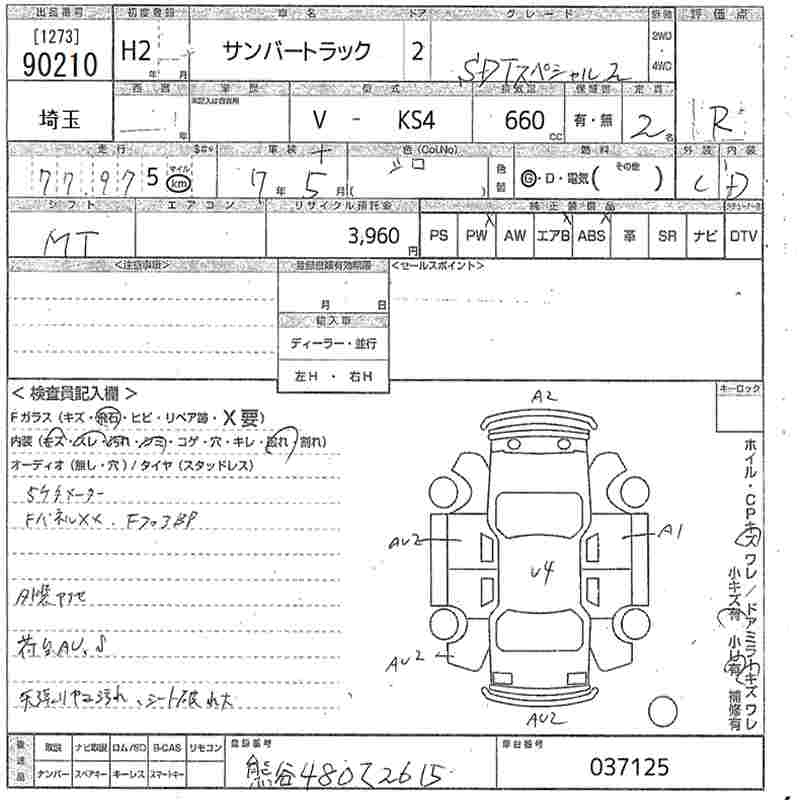 出品番号 初度登録 車名 ドア グレード 評価点
[1273]
90210 H2 年 月 サンバートラック 2 SDTスペシャル 2WD ・ 4WD
車歴 型式 排気量 定員
埼玉 年 V - KS4 660 CC 有・無 2名 R
走行 車検 色(Col.No) 色替 燃料 外装 内装
77,975 マイル km 7年 5月 シロ ( ) G・D・電気( その他 ) C D
シフト エアコン リサイクル預託金 純正装備品
MT 3,960 円 PS PW AW エアB ABS 革 SR ナビ DTV
<注意事項> 登録書類有効期限 <セールスポイント>
月 日
輸入車
ディーラー・並行
左H ・ 右H
< 検査員記入欄 > キーロック
Fガラス (キズ・飛石・ヒビ・リペア跡・X要)
内装 (キズ・スレ・汚れ・シミ・コゲ・穴・キレ・破れ・割れ)
オーディオ (無し・穴) / タイヤ (スタッドレス)
5ケタメーター
FパネルXX、FフックBP
外装サビ
荷台AU、S
シート破れ大
A2
AU2 A1
U4
AU2
AU2
ホイル・CPキズ ワレ / ドアミラーキズ ワレ
小キズ有 小凹有 補修有
後送品 取説 ナビ取説 ロム/SD B-CAS リモコン 登録番号 車台番号
ナンバー スペアキー キーレス スマートキー 熊谷480て2615 037125